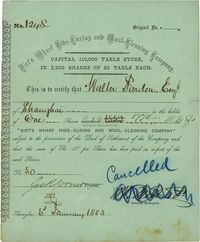 No. 1248
Original No.
Birt's Wharf Hide-Curing and Wool-Cleaning Company.
CAPITAL 110,000 TAELS STOCK,
IN 2,200 SHARES OF 50 TAELS EACH.
This is to certify that Walter Pandon, Esqr.
Shanghai is the holder
of One Share numbered 1772
in "BIRT'S WHARF HIDE-CURING AND WOOL-CLEANING COMPANY"
subject to the provisions of the Deed of Settlement of the Company and
that the sum of Tls. 50 per Share has been paid in respect of the
said Shares.
Tls. 50
Cancelled
Shanghai 5th January 1883